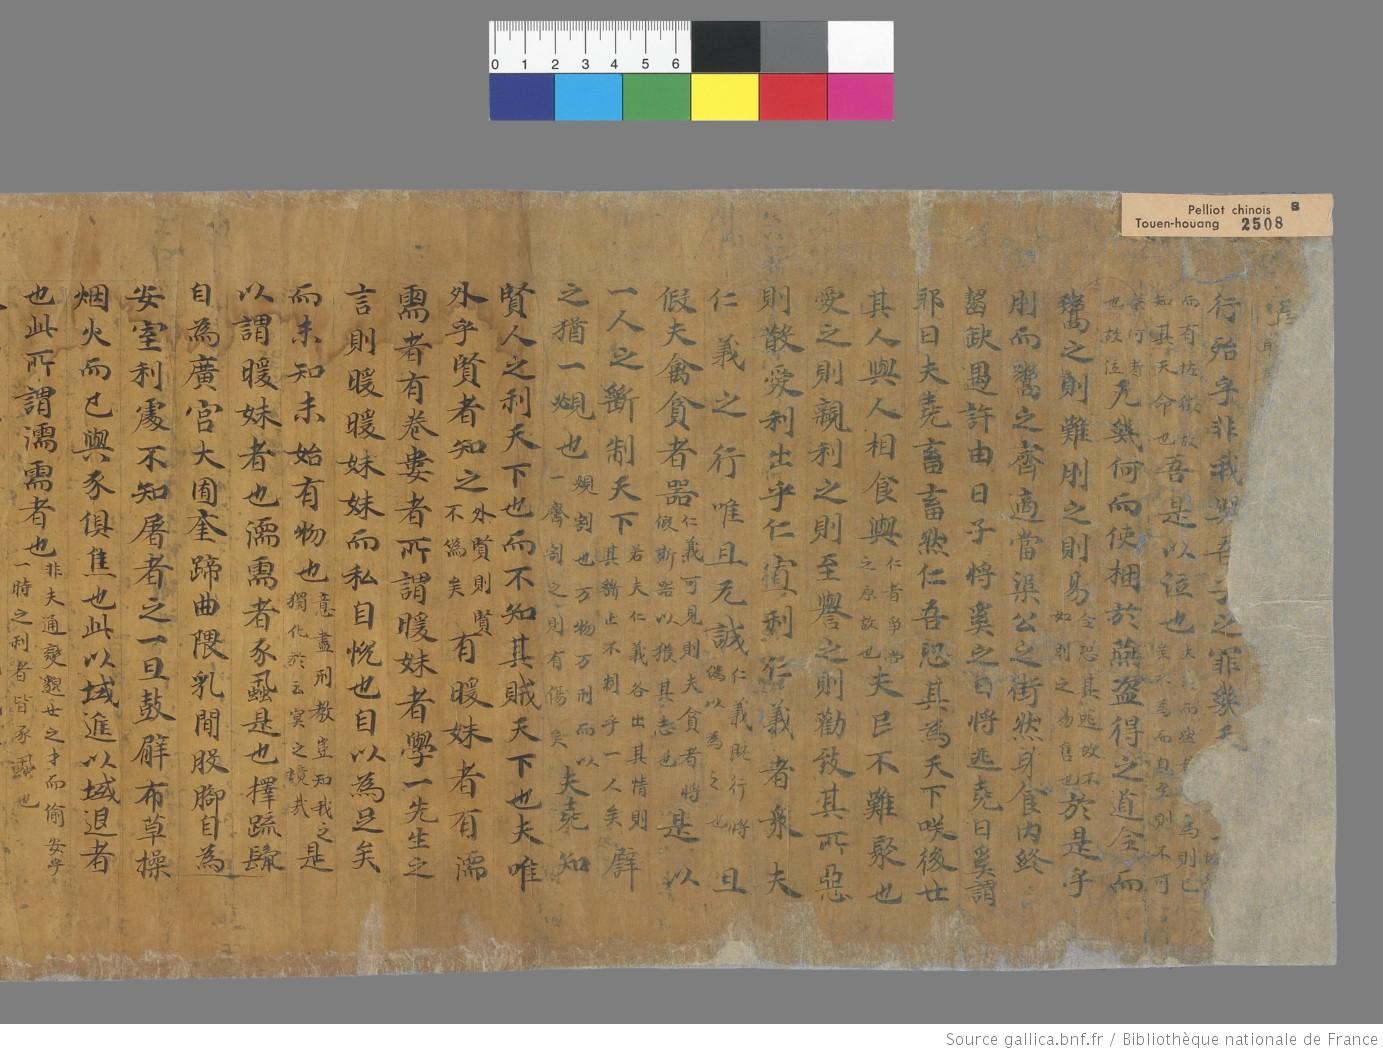 Pelliot chinois
Touen-houang 2508
0 1 2 3 4 5 6
行殆乎非我與吾子之罪幾天
而有怪徵故
知其天命也吾是以泣也
也故泣无幾何而使梱於燕盗得之道全而
鬻之則難刖之則易全恐其逃故不如刖之易售也於是乎
刖而鬻之齊適當渠公之街然身食肉終
齧缺遇許由曰子將奚之曰將逃堯曰奚謂
耶曰夫堯畜畜然仁吾恐其為天下咲後世
其人與人相食與仁者爭尚之原故也夫民不難聚也
愛之則親利之則至譽之則勸致其所惡
則散愛利出乎仁義利仁義者衆夫
仁義之行唯且无誠仁義既行將偽以為之也且
假夫禽貪者器仁義可見則夫貪者將假斯器以獲其志也是以
一人之斷制天下若夫仁義各出其情則其斷止不制乎一人矣譬
之猶一覕也覕割也万物万刑而以一齊割之則有傷矣夫堯知
賢人之利天下也而不知其賊天下也夫唯
外乎賢者知之外賢則賢不為矣有暖妹者有濡
需者有卷婁者所謂暖妹者學一先生之
言則暖暖妹妹而私自悦也自以為足矣
而未知未始有物也意盡刑教豈知我之獨化於玄冥之境哉是
以謂暖妹者也濡需者豕蝨是也擇疏鬛
自為廣宫大囿奎蹄曲隈乳間股脚自為
安室利處不知屠者之一旦鼓臂布草操
烟火而已與豕俱焦也此以域進以域退者
也此所謂濡需者也非夫通變邈世之才而偷安乎一時之利者皆豕蝨也
Source gallica.bnf.fr / Bibliothèque nationale de France